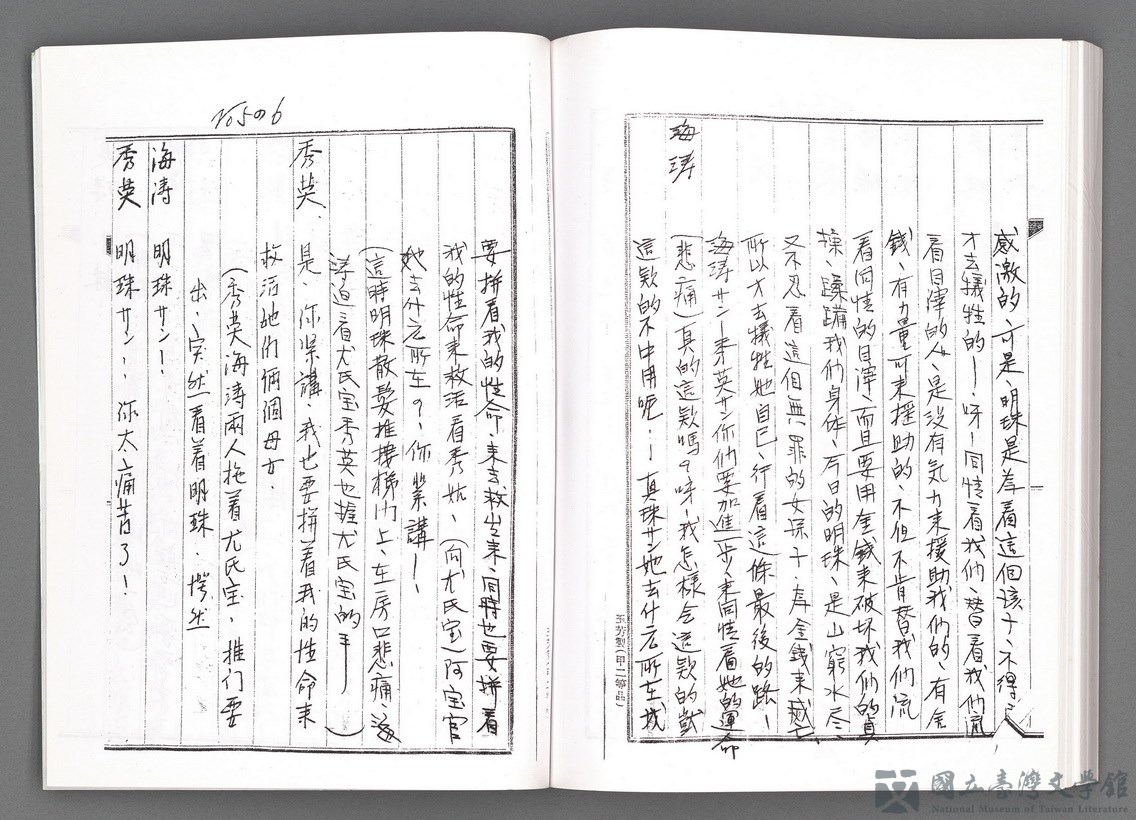 感激的、可是、明珠是為着這個孩子、不得已
才去犧牲的——呀！同情看我們、替看我們流
看目澤的人、是沒有気力來援助我們的、有金
錢、有力量可來援助的、不但不肯替我們流
看同情的目澤、而且要用金錢來破坏我們的貞
操、蹂躪我們身体、今日的明珠、是山窮水尽、
又不忍看這個無罪的女孩子、為金錢來
所以才去犧牲她自己、行看這條最後的路！
海濤サン！秀英サン你們要加進一步來同情看她的運命
海濤
(悲痛)真的這款嗎？呀！我怎樣会這款的
這款的不中用呃！！真珠サン她去什么所在找
要拼看我的性命、來去救出來、同時也要拼看
我的性命來救活看秀姑、(向尤氏宝)阿宝官
她去什么所在？、你紧講！
(這時明珠散髮推接梯门上、在房口悲痛、海
濤迫看尤氏宝秀英也握尤氏宝的手——)
秀英、是、你紧講、我也要拼看我的性命来
救活她们倆個母女.
(秀英海涛兩人拖着尤氏宝、推门要
出、突然看着明珠. 愕然
海涛 明珠サン！！
秀英 明珠サン！、你太痛苦了！
705の6
玉芳製(甲二等品)
國立臺灣文學館
National Museum of Taiwan Literature